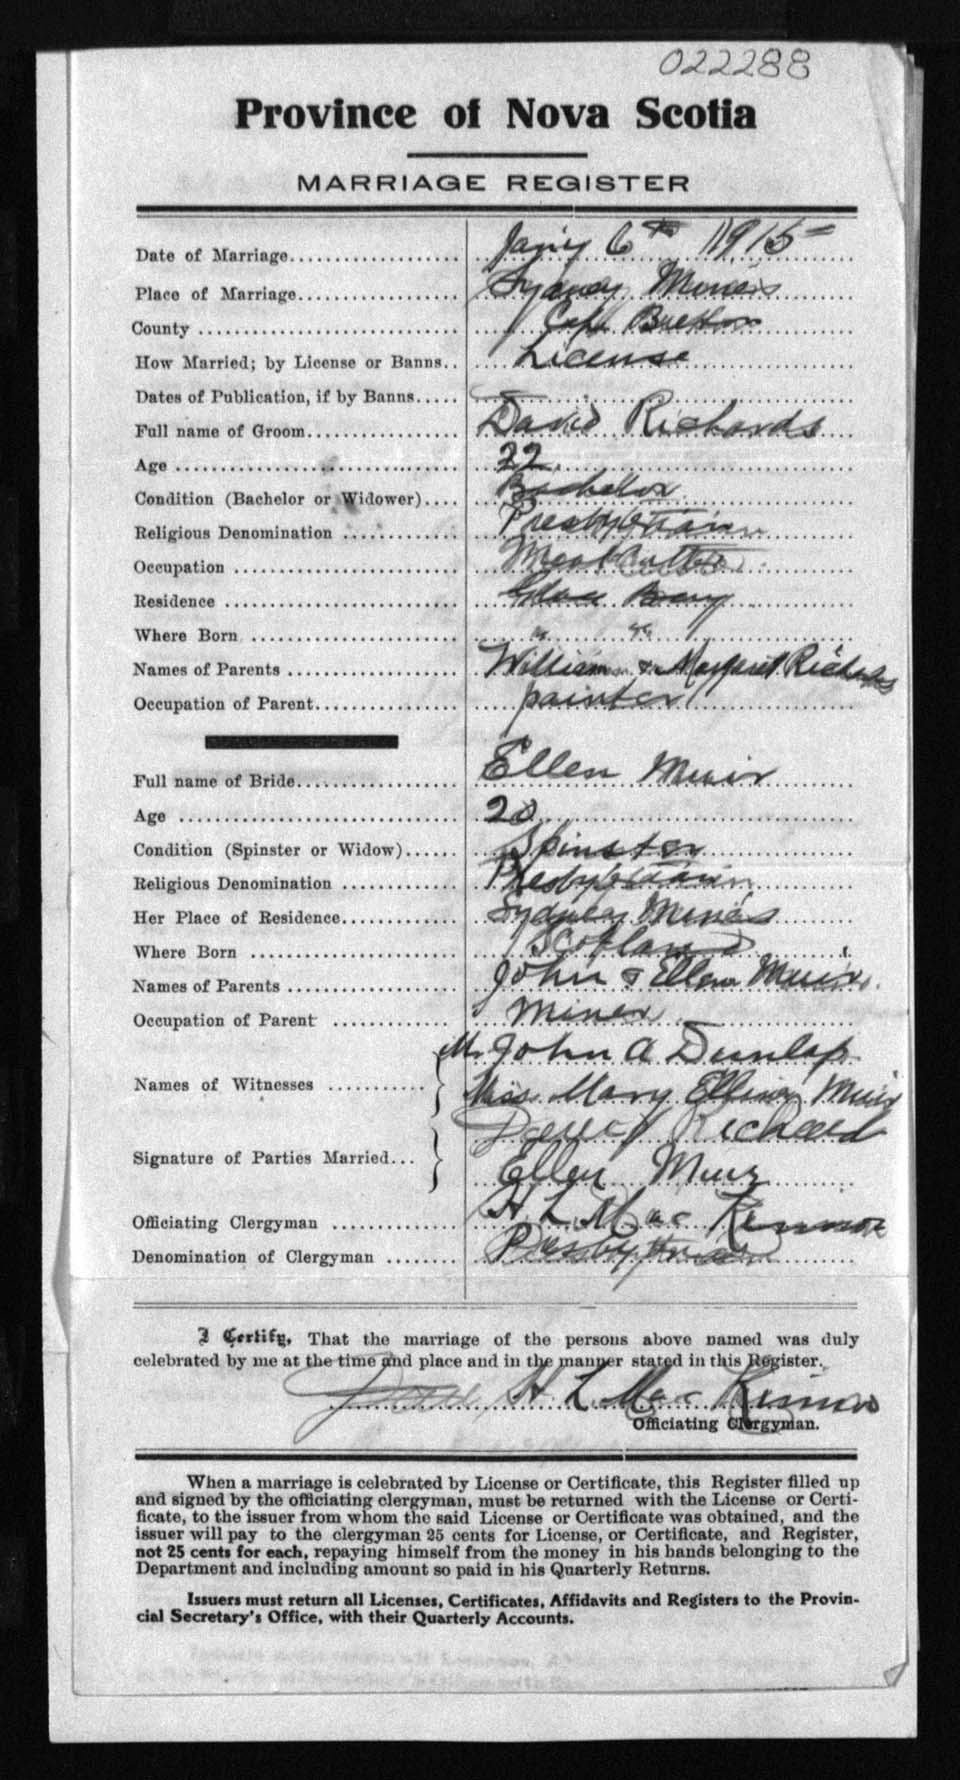 022288
Province of Nova Scotia
MARRIAGE REGISTER
Date of Marriage Jan'y 6th 1915
Place of Marriage Sydney Mines
County Cape Breton
How Married; by License or Banns License
Dates of Publication, if by Banns
Full name of Groom David Richards
Age 22
Condition (Bachelor or Widower) Bachelor
Religious Denomination Presbyterian
Occupation Meat Cutter
Residence Glace Bay
Where Born " "
Names of Parents William & Margaret Richards
Occupation of Parent painter
Full name of Bride Ellen Muir
Age 20
Condition (Spinster or Widow) Spinster
Religious Denomination Presbyterian
Her Place of Residence Sydney Mines
Where Born Scotland
Names of Parents John & Ellen Muir
Occupation of Parent Miner
Names of Witnesses Mr John A Dunlap
Miss Mary Muir
Signature of Parties Married David Richard
Ellen Muir
Officiating Clergyman H L MacKinnon
Denomination of Clergyman Presbyterian
I Certify, That the marriage of the persons above named was duly
celebrated by me at the time and place and in the manner stated in this Register.
H L MacKinnon
Officiating Clergyman.
When a marriage is celebrated by License or Certificate, this Register filled up
and signed by the officiating clergyman, must be returned with the License or Certi-
ficate, to the issuer from whom the said License or Certificate was obtained, and the
issuer will pay to the clergyman 25 cents for License, or Certificate, and Register,
not 25 cents for each, repaying himself from the money in his hands belonging to the
Department and including amount so paid in his Quarterly Returns.
Issuers must return all Licenses, Certificates, Affidavits and Registers to the Provin-
cial Secretary's Office, with their Quarterly Accounts.